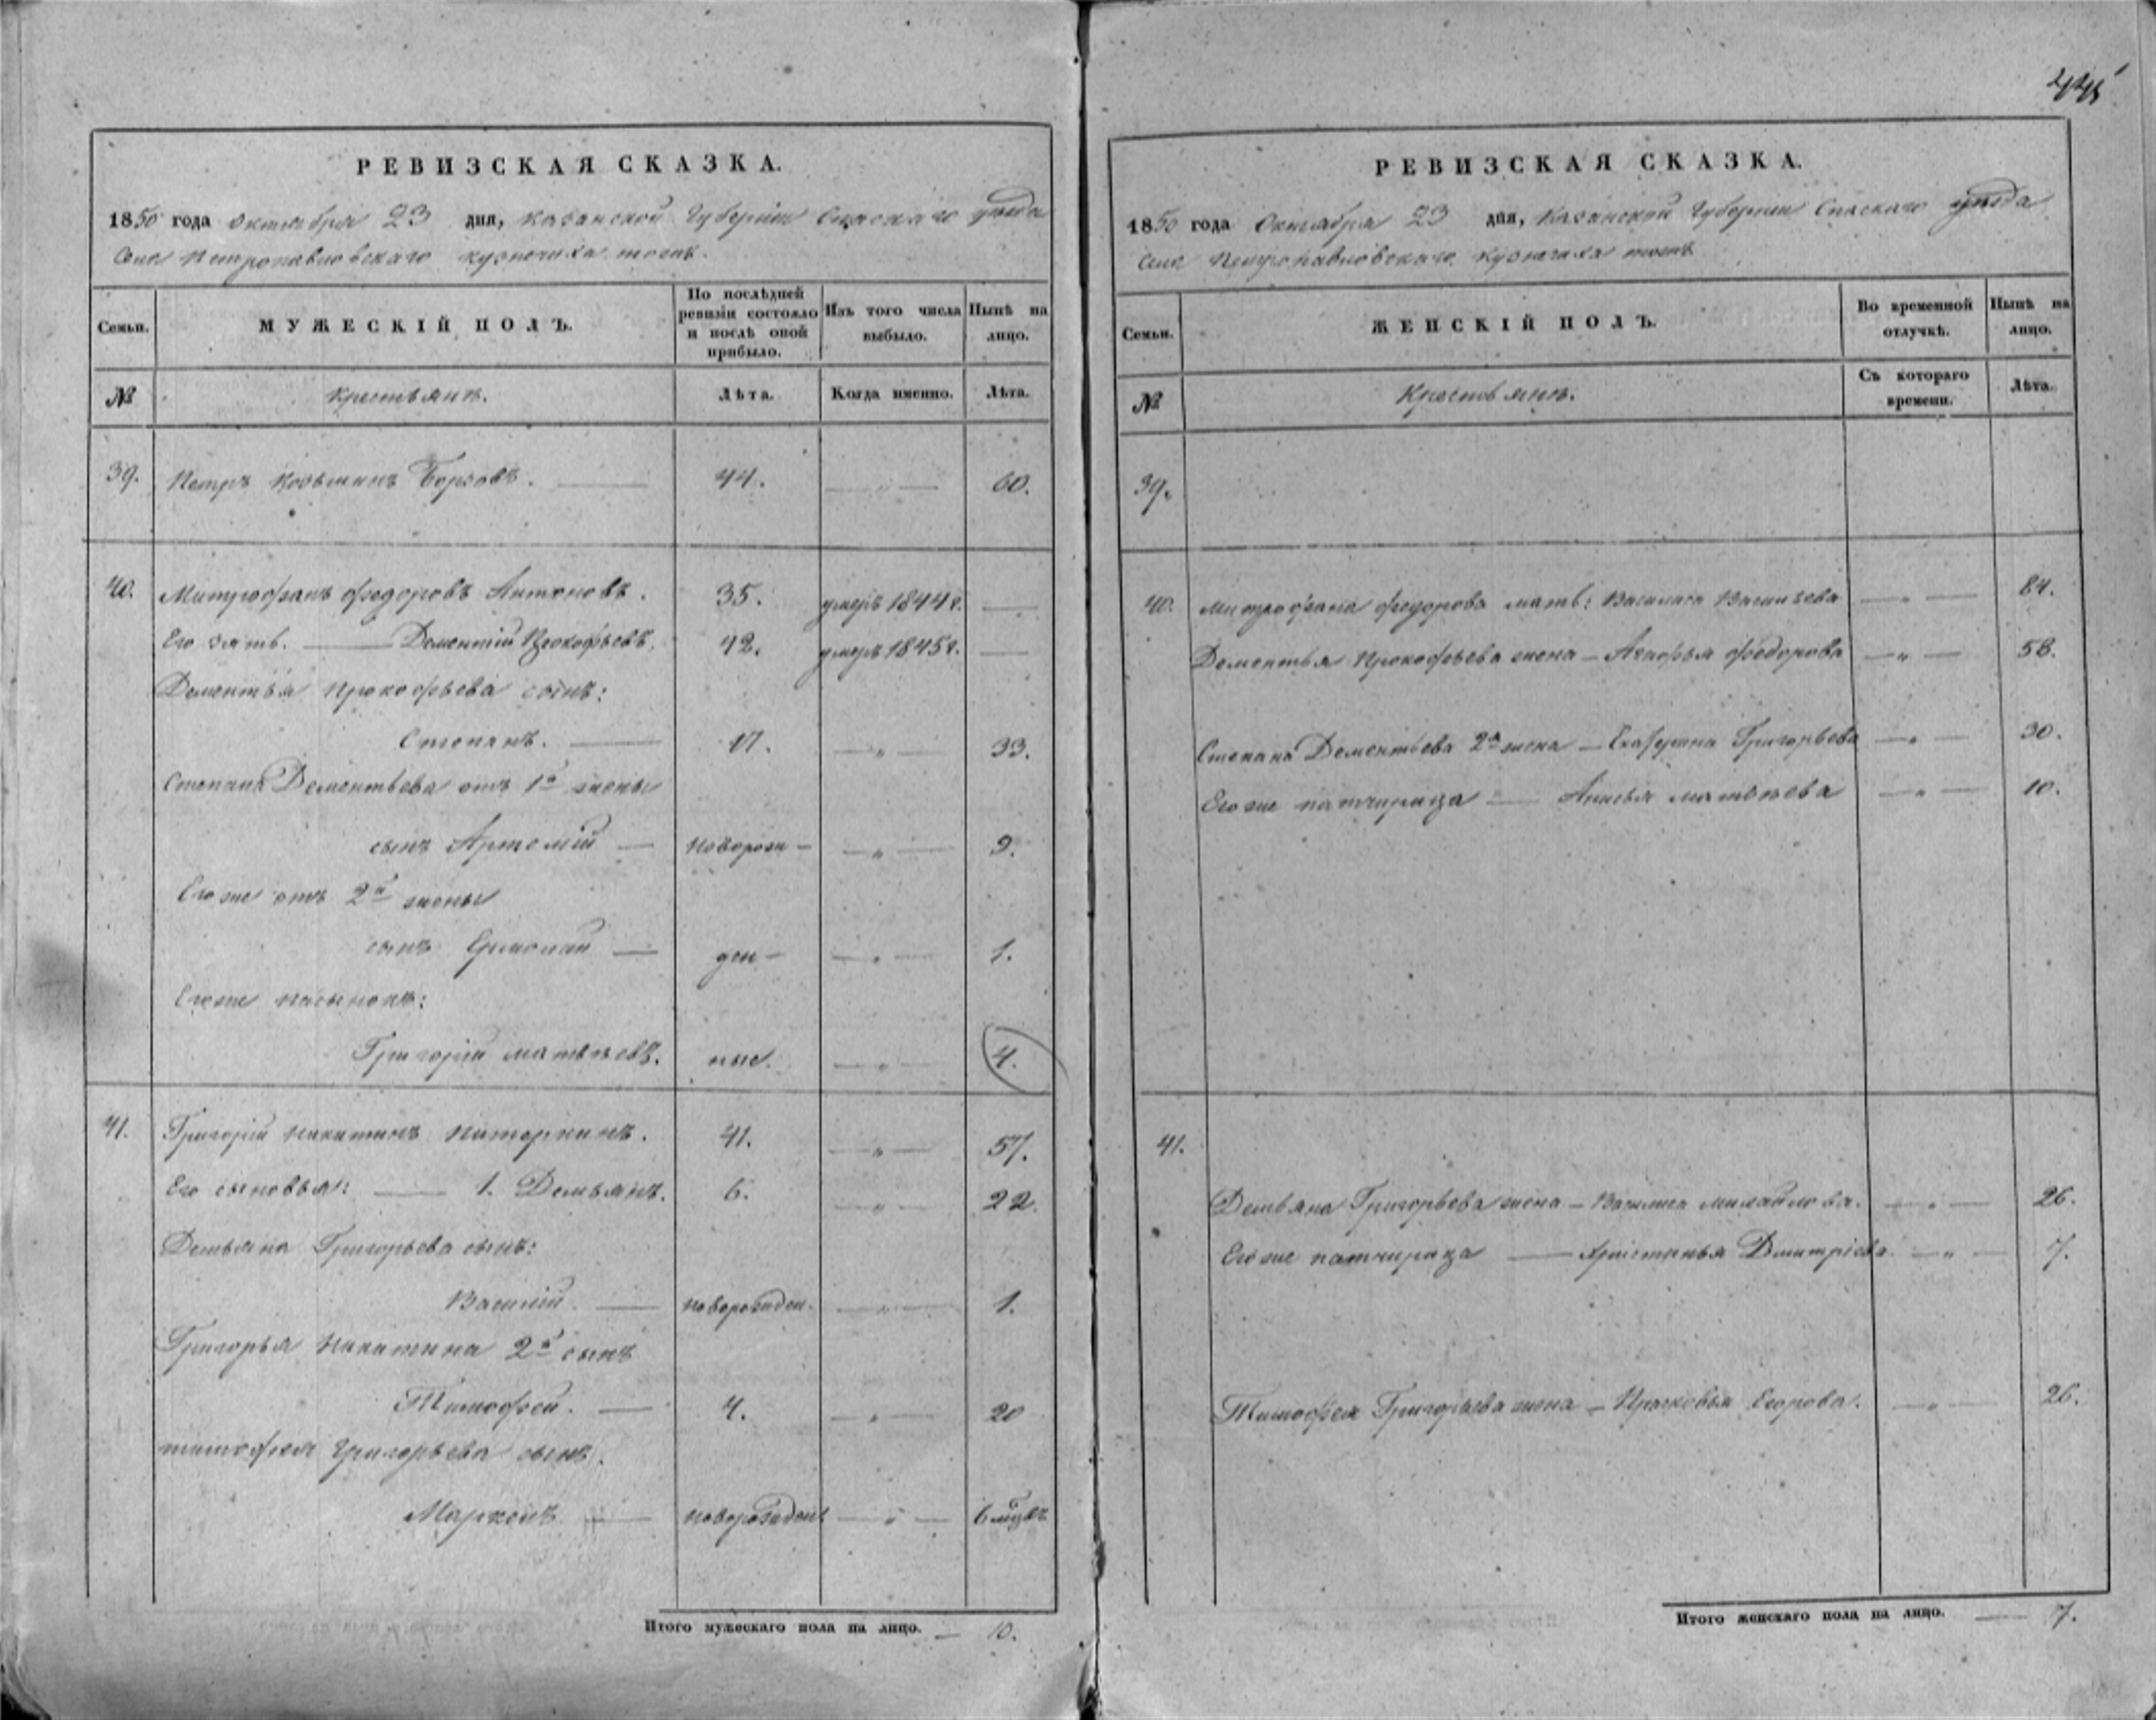 445
РЕВИЗСКАЯ СКАЗКА.
1850 года Октября 23 дня, Казанской Губернии Спаскаго уѣзда
Села Петропавловскаго Кузнечиха тожъ.
Семьи.
МУЖЕСКІЙ ПОЛЪ.
По послѣдней ревизіи состояло и послѣ оной прибыло.
Изъ того числа выбыло.
Нынѣ на лицо.
№
Крестьянъ.
Лѣта.
Когда именно.
Лѣта.
39. Петръ Козьминъ Борзовъ. 44. — „ — 60.
40. Митрофанъ Федоровъ Антоновъ. 35. умеръ 1844 г. —
Его зять. — Дементій Прокофьевъ. 42. умеръ 1845 г. —
Дементья Прокофьева сынъ:
Степанъ. — 17. — „ — 33.
Степана Дементьева отъ 1й жены
сынъ Артемій — новорож — — „ — 9.
Его же отъ 2й жены
сынъ Ермолай — ден — — „ — 1.
Его же пасынокъ:
Григорій Матвѣевъ. ные. — „ — 4.
41. Григорій Никитинъ Питеркинъ. 41. — „ — 57.
Его сыновья: — 1. Демьянъ. 6. — „ — 22.
Демьяна Григорьева сынъ:
Василій. — новорожден. — „ — 1.
Григорья Никитина 2й сынъ
Тимофей. — 4. — „ — 20
Тимофея Григорьева сынъ.
Маркелъ — новорожден — „ — 6 мцвъ
Итого мужескаго пола на лицо. — 10.
РЕВИЗСКАЯ СКАЗКА.
1850 года Октября 23 дня, Казанской Губернии Спаскаго уѣзда
Села Петропавловскаго Кузнечиха тожъ
Семьи.
ЖЕНСКІЙ ПОЛЪ.
Во временной отлучкѣ.
Нынѣ на лицо.
№
Крестьянъ.
Съ котораго времени.
Лѣта.
39.
40. Митрофана Федорова мать: Василиса Васильева — „ — 84.
Дементья Прокофьева жена — Агафья Федорова — „ — 58.
Степана Дементьева 2я жена — Екатерина Григорьева — „ — 30.
Его же патчирица — Анисья Матвѣева — „ — 10.
41.
Демьяна Григорьева жена — Василиса Михайлова. — „ — 26.
Его же патчирица — Христинья Дмитріева — „ — 7.
Тимофея Григорьева жена — Прасковья Егорова. — „ — 26.
Итого женскаго пола на лицо. — 7.